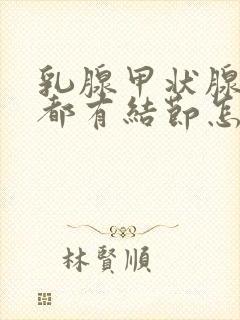 乳腺甲狀腺
都有結節怎
林賢順